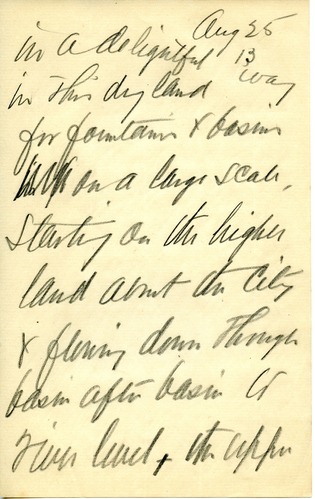 Aug 25
13
in a delightful way
in this dry land
for fountains & basins
on a large scale,
starting on the higher
land about the City
& flowing down through
basin after basin to
river level, the upper